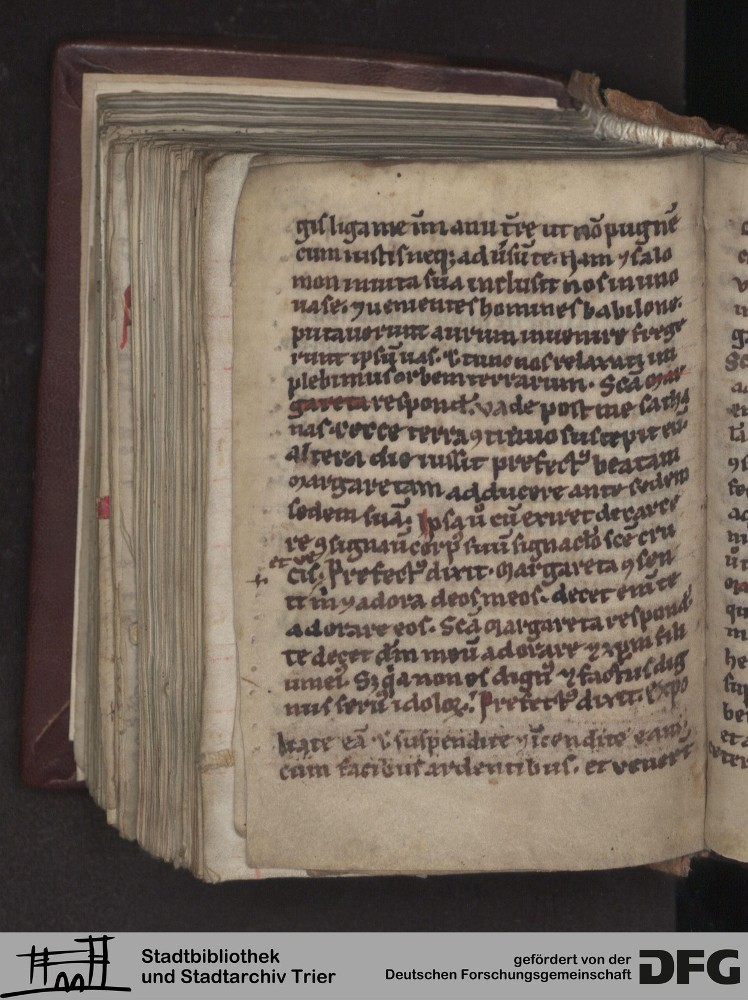 gis liga me ī manu t̄re ut nō pugnē
cum iustis neq; adūsū te. Nam ⁊ salo
mon in uita sua inclusit nos in uno
uase. ⁊ uenientes homines babilone.
putauerunt aurum inuenire frege
runt ipsū uas. ⁊ tunc nos relaxati im
pleuimus orbem terrarum. Scā mar
gareta respond. Vade post me satha
nas. ⁊ ecce terra suscepit eū.
altera die iussit prefectꝰ beatam
margaretam adducere ante sedem
sedem suā. Ipsa ū cū exiret de carce
re ꝯsignau corpꝰ suū signac̄lo scē cru
et
cis. Prefectꝰ dixit. Margareta ꝯsen
ti m̄ ⁊ adora deos meos. decet enī te
adorare eos. Scā Margareta respond.
te decet dm̄ meū adorare ⁊ xp̄m fili
um ei. Sz q̄a non es dignꝰ ⁊ factus dig
nus seruꝰ idoloꝝ. Prefectꝰ dixit. Expo
liate eā ⁊ suspendite ⁊ īcendite eam.
cum facibus ardentibus. et uenerūt
Stadtbibliothek
und Stadtarchiv Trier
gefördert von der
Deutschen Forschungsgemeinschaft
DFG